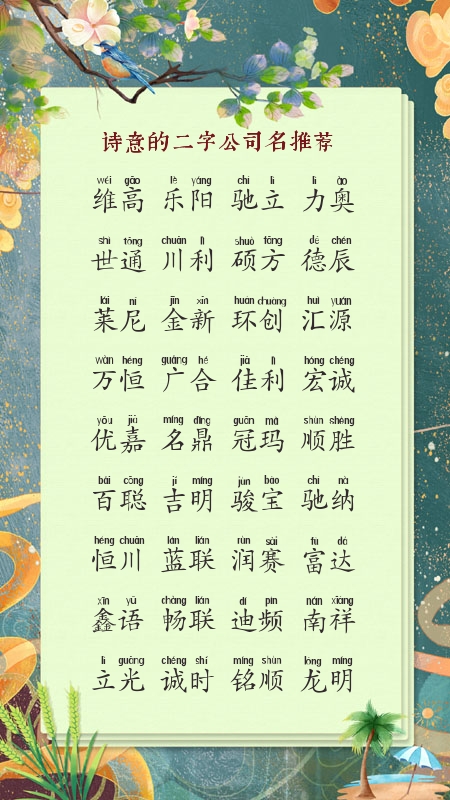 诗意的二字公司名推荐
wéi gāo lè yáng chí lì lì ào
维高 乐阳 驰立 力奥
shì tōng chuān lì shuò fāng dé chén
世通 川利 硕方 德辰
lái ní jīn xīn huán chuàng huì yuán
莱尼 金新 环创 汇源
wàn héng guǎng hé jiā lì hóng chéng
万恒 广合 佳利 宏诚
yōu jiā míng dǐng guān mǎ shùn shèng
优嘉 名鼎 冠玛 顺胜
bǎi cōng jí míng jùn bǎo chí nà
百聪 吉明 骏宝 驰纳
héng chuān lán lián rùn sài fù dá
恒川 蓝联 润赛 富达
xīn yǔ chàng lián dí pín nán xiáng
鑫语 畅联 迪频 南祥
lì guāng chéng shí míng shùn lóng míng
立光 诚时 铭顺 龙明